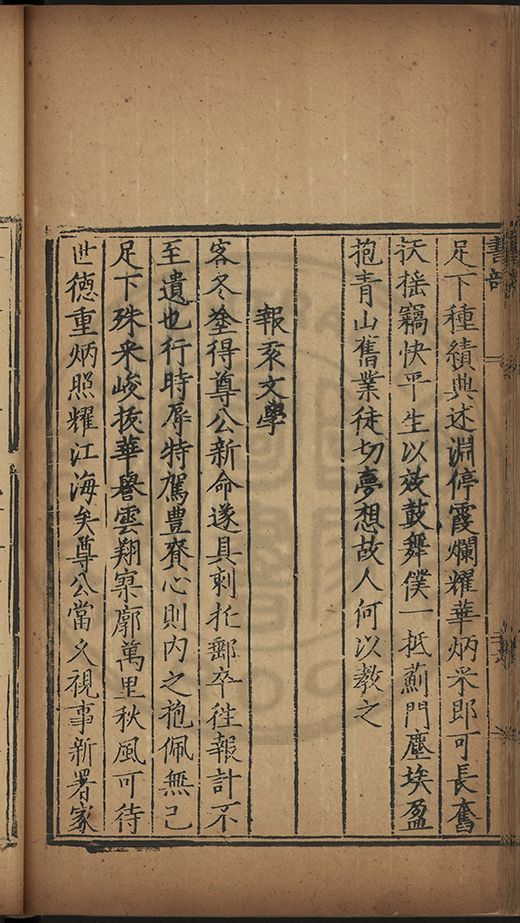 書部
足下種績典述淵停霞爛耀華炳采即可長奮
扶搖竊快平生以效鼓舞僕一抵薊門塵埃盈
抱青山舊業徒切夢想故人何以教之
報文學
客冬塗得尊公新命遂具刺托郵卒徃報計不
至遺也行時辱特駕豊賚心則内之抱佩無已
足下殊采峻拔華譽雲翔寥廓萬里秋風可待
世德重炳照耀江海矣尊公當久視事新署家